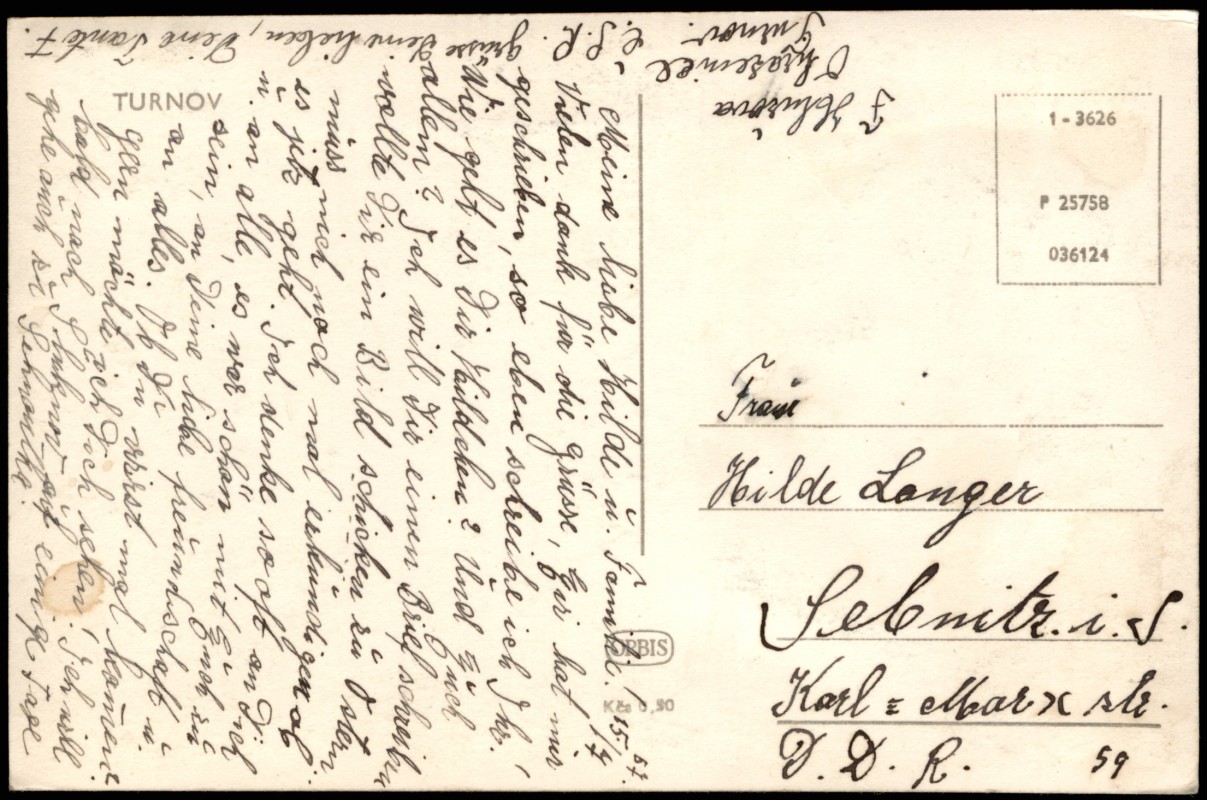 TURNOV
Meine liebe Hilde u. Familie! 15/7 57.
Vielen dank für die grüsse, hat mir
geschrieben, so eben schreibe ich Ihr.
Wie geht es Dir Hildchen? Und Euch
allen? Ich will Dir einen Brief schreiben
wollte Dir ein Bild schicken zu Ostern
muss mich noch mal erkundigen ob
es jetz geht. Ich denke so oft an Dich
u. an alle, es war schön mit Euch zu
sein, an Deine liebe freundschaft u.
an alles. Ob Du wirst mal kommen?
gern möchte ich Dich sehen! Ich will
bald nach auf einige Tage
gehe auch zu
grüsse Deine lieben, Deine Tante F.
F
Turnov. Č.S.R.
1-3626
P 25758
036124
ORBIS
Kčs 0,50
Frau
Hilde Langer
Sebnitz. i. S.
Karl = Marx str.
D. D. R. 59